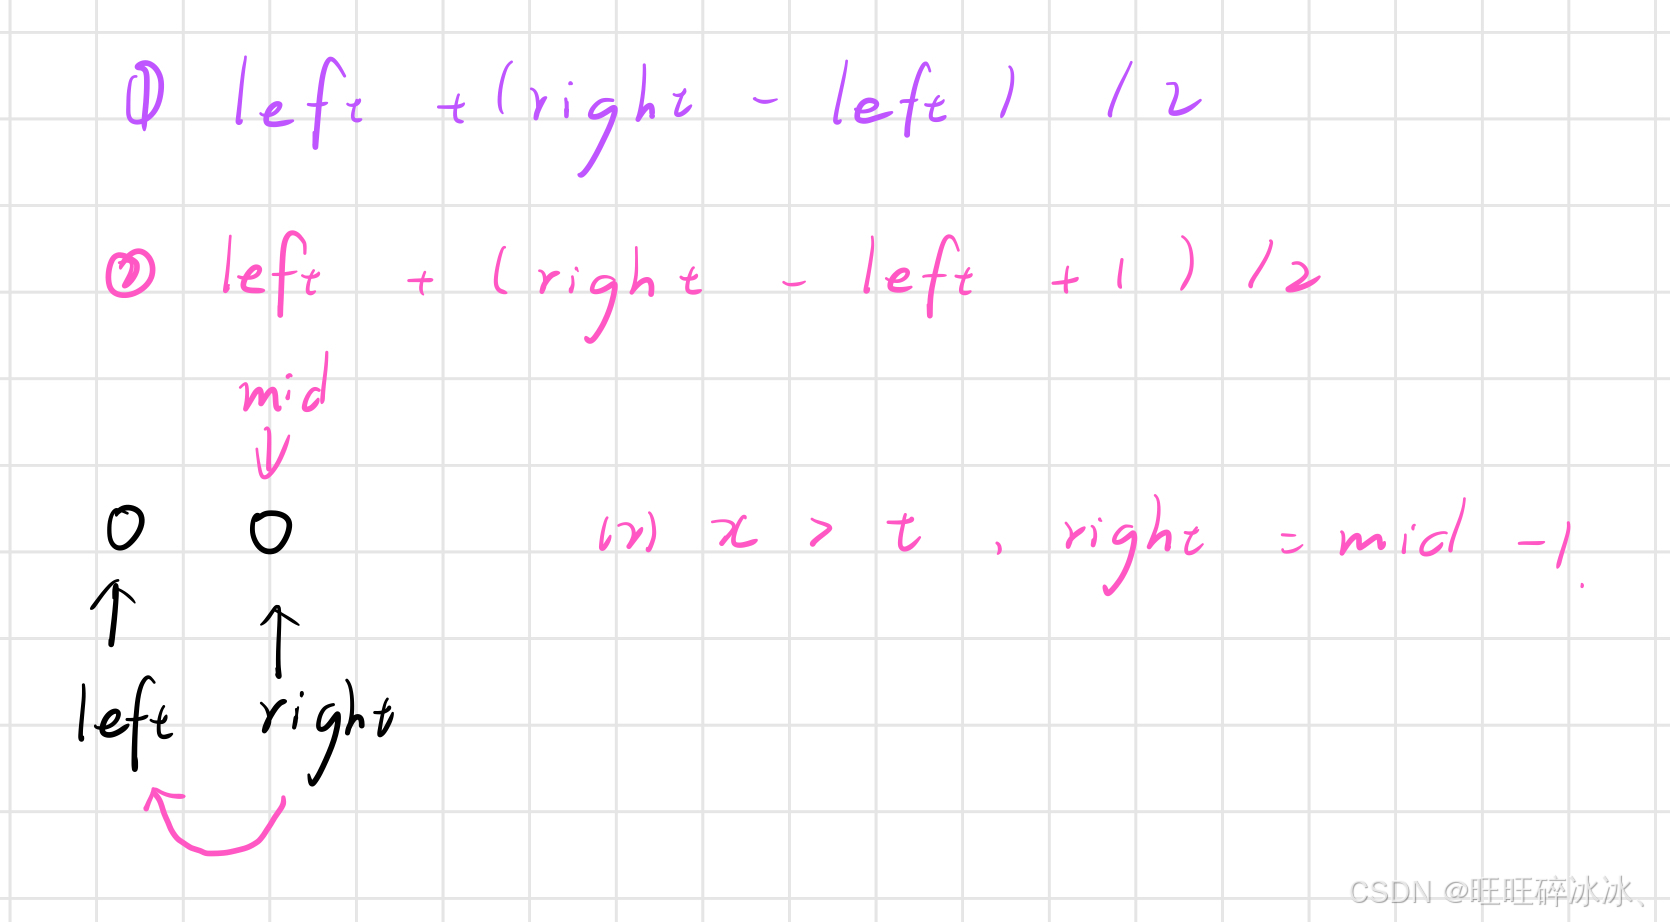 ① left + (right - left) / 2
② left + (right - left + 1) / 2
mid
(2) x > t , right = mid - 1.
left right
CSDN @旺旺碎冰冰、